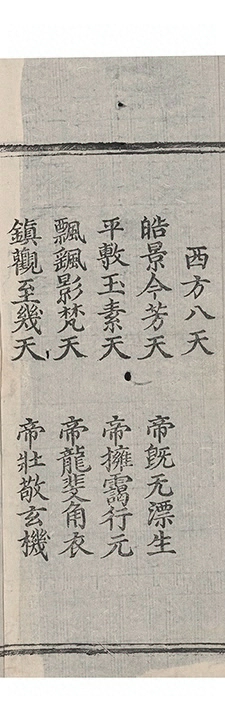 西方八天
皓景今芳天　帝旣无漂生
平敷玉素天　帝擁靄行元
飄飖影梵天　帝龍斐角衣
鎮觀至幾天　帝壯敬玄機